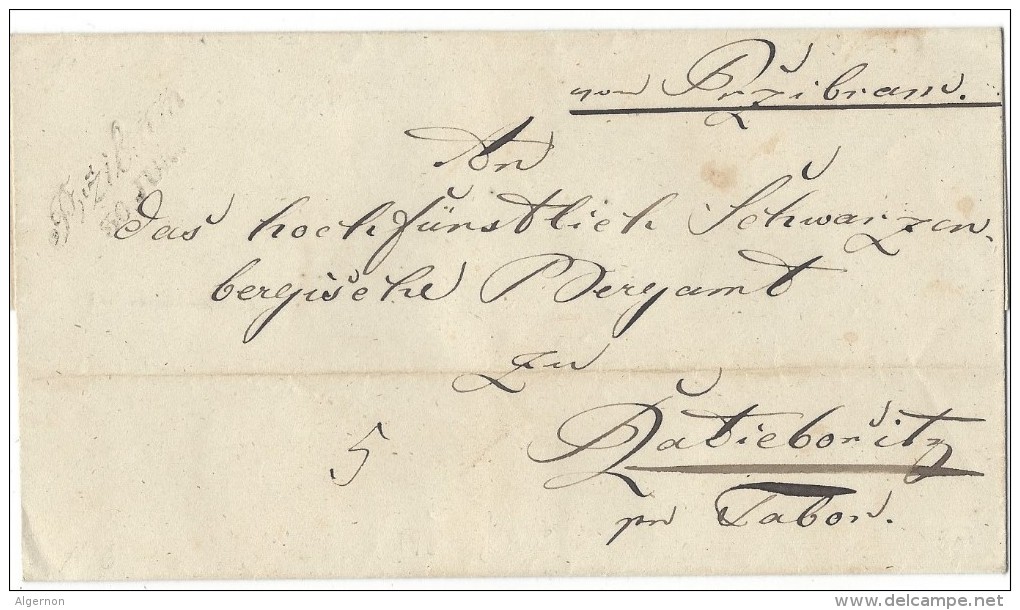 von Pržibram.
An
das hochfürstlich Schwarzen-
bergische Bergamt
zu
Ratiebořitz
5
pr Tabor.
Algernon
www.delcampe.net